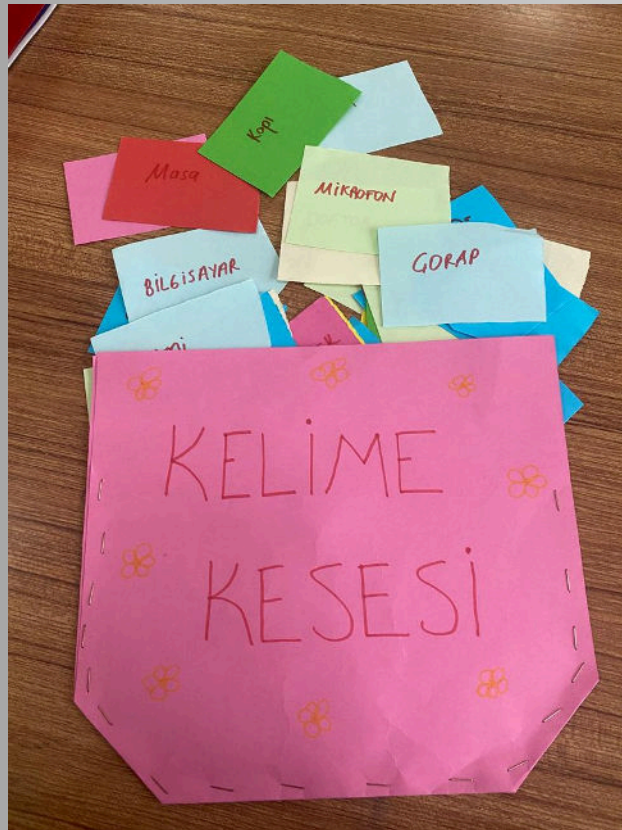 Kapı
Masa
MİKROFON
GORAP
BİLGİSAYAR
KELİME
KESESİ